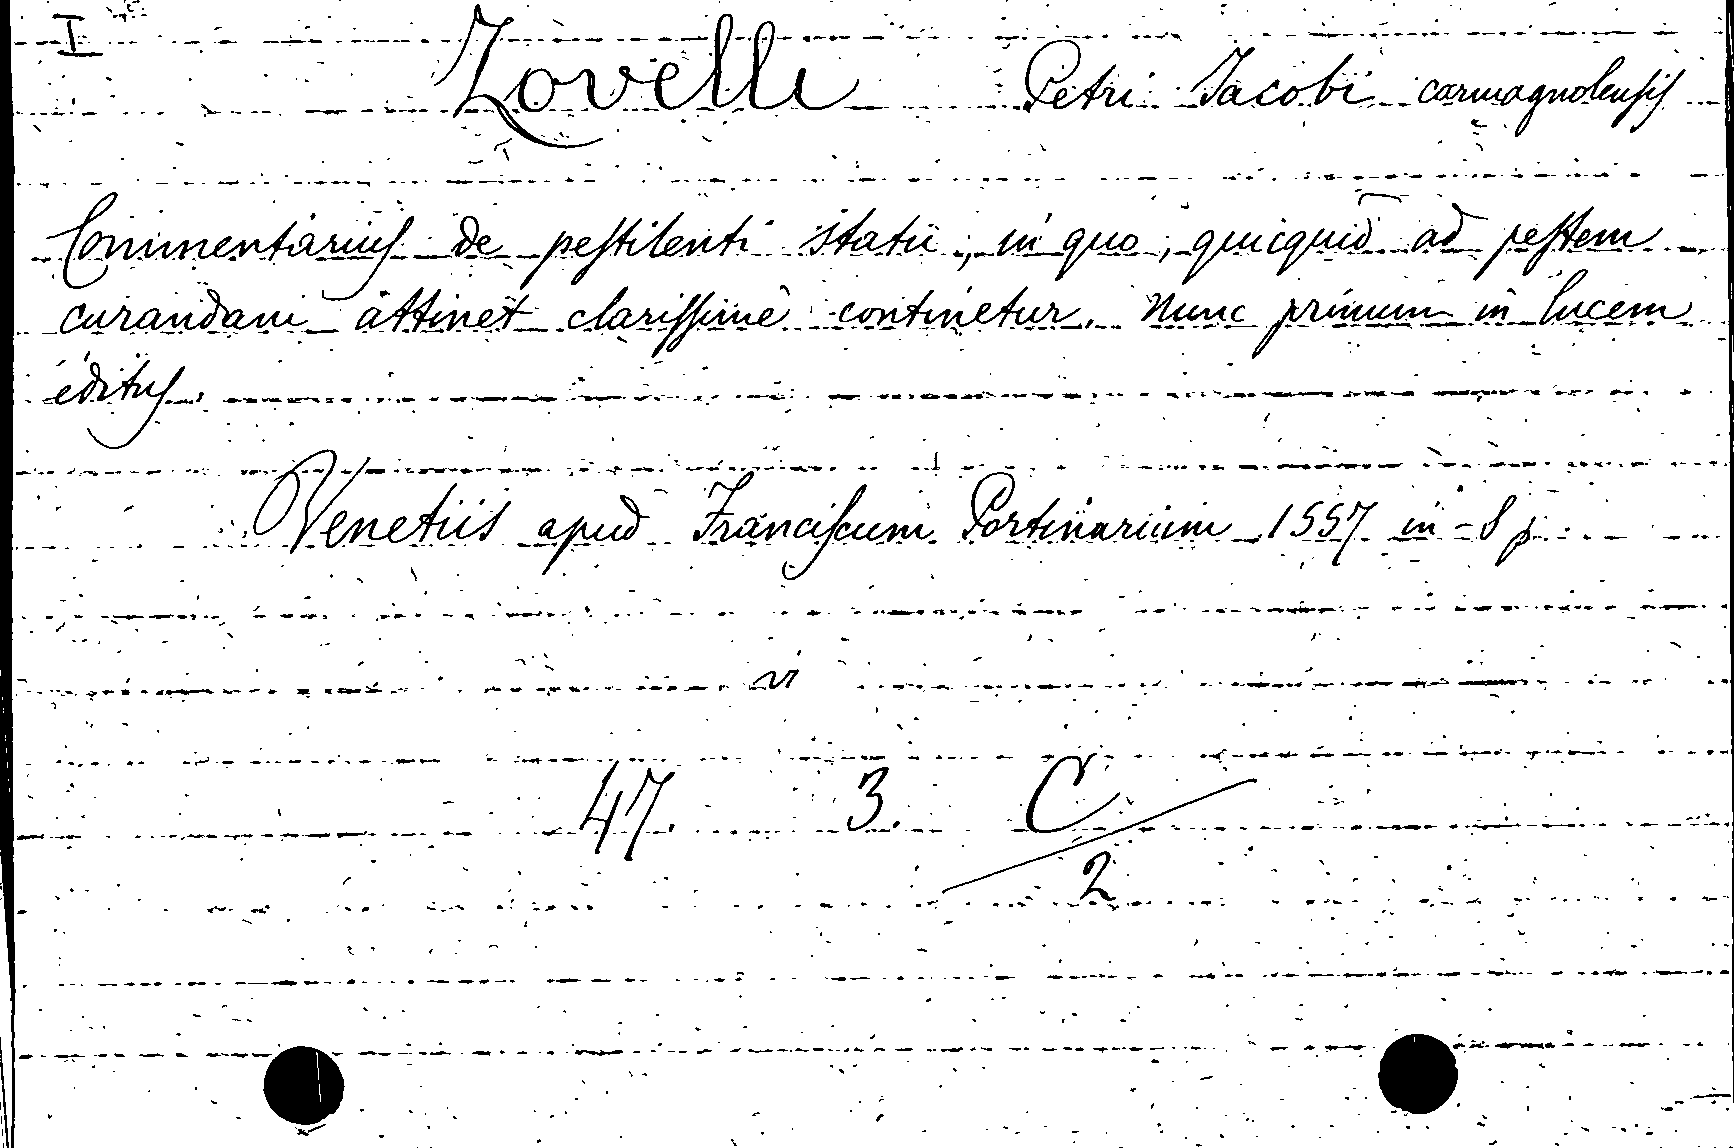 I
Zovelli Petri Jacobi carmagnolensis
Commentarius de pestilenti statu, in quo, quicquid ad pestem
curandam attinet clarissime continetur. Nunc primum in lucem
editus.
Venetiis apud Franciscum Portinarium 1557 in-8 p.
47. 3. C
2